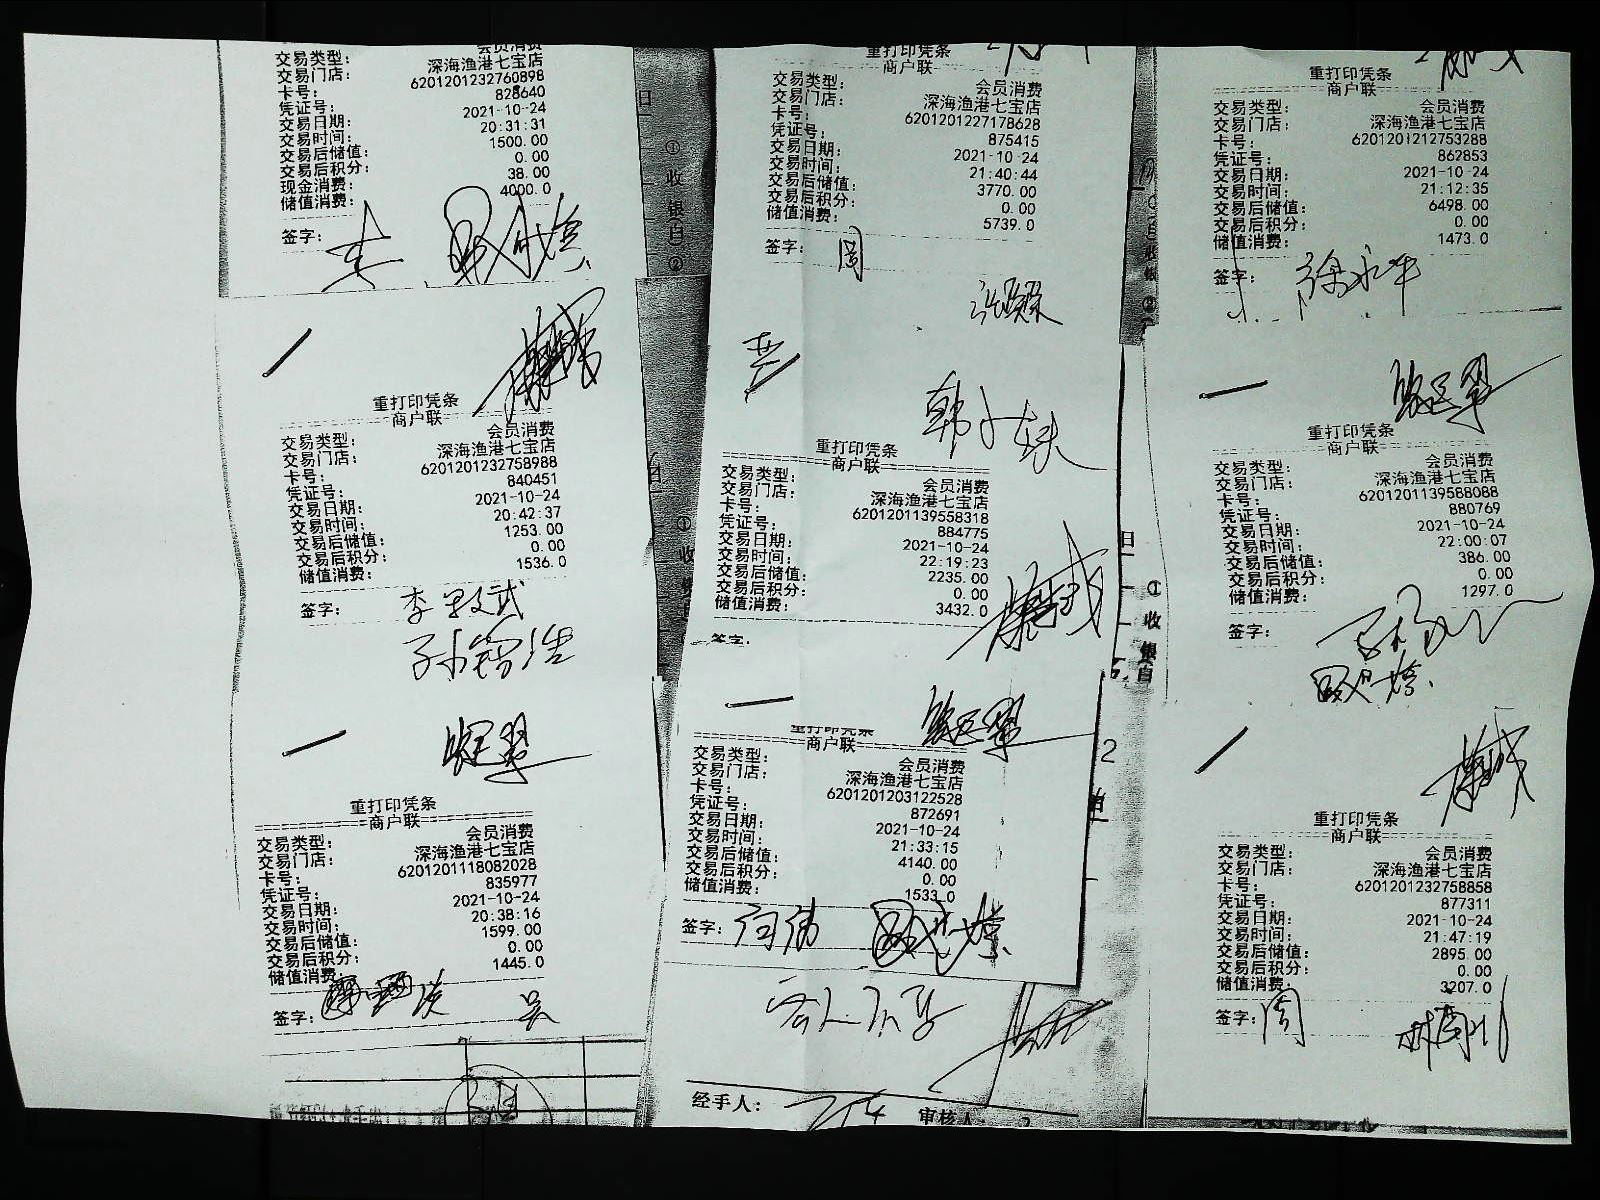 会员消费
交易类型:
深海渔港七宝店
交易门店:
6201201232760898
卡号:
828640
凭证号:
2021-10-24
交易日期:
20:31:31
交易时间:
1500.00
交易后储值:
0.00
交易后积分:
38.00
现金消费:
4000.0
储值消费:
签字:
重打印凭条
商户联
交易类型: 会员消费
交易门店: 深海渔港七宝店
卡号: 6201201232758988
凭证号: 840451
交易日期: 2021-10-24
交易时间: 20:42:37
交易后储值: 1253.00
交易后积分: 0.00
储值消费: 1536.0
签字:
重打印凭条
商户联
交易类型: 会员消费
交易门店: 深海渔港七宝店
卡号: 6201201118082028
凭证号: 835977
交易日期: 2021-10-24
交易时间: 20:38:16
交易后储值: 1599.00
交易后积分: 0.00
储值消费: 1445.0
签字: 吴
重打印凭条
商户联
交易类型: 会员消费
交易门店: 深海渔港七宝店
卡号: 6201201227178628
凭证号: 875415
交易日期: 2021-10-24
交易时间: 21:40:44
交易后储值: 3770.00
交易后积分: 0.00
储值消费: 5739.0
签字: 周
韩小妹
重打印凭条
商户联
交易类型: 会员消费
交易门店: 深海渔港七宝店
卡号: 6201201139558318
凭证号: 884775
交易日期: 2021-10-24
交易时间: 22:19:23
交易后储值: 2235.00
交易后积分: 0.00
储值消费: 3432.0
签字:
重打印凭条
商户联
交易类型: 会员消费
交易门店: 深海渔港七宝店
卡号: 6201201203122528
凭证号: 872691
交易日期: 2021-10-24
交易时间: 21:33:15
交易后储值: 4140.00
交易后积分: 0.00
储值消费: 1533.0
签字: 何伟
经手人: 审核人
重打印凭条
商户联
交易类型: 会员消费
交易门店: 深海渔港七宝店
卡号: 6201201212753288
凭证号: 862853
交易日期: 2021-10-24
交易时间: 21:12:35
交易后储值: 6498.00
交易后积分: 0.00
储值消费: 1473.0
签字: 徐永平
重打印凭条
商户联
交易类型: 会员消费
交易门店: 深海渔港七宝店
卡号: 6201201139588088
凭证号: 880769
交易日期: 2021-10-24
交易时间: 22:00:07
交易后储值: 386.00
交易后积分: 0.00
储值消费: 1297.0
签字:
重打印凭条
商户联
交易类型: 会员消费
交易门店: 深海渔港七宝店
卡号: 6201201232758858
凭证号: 877311
交易日期: 2021-10-24
交易时间: 21:47:19
交易后储值: 2895.00
交易后积分: 0.00
储值消费: 3207.0
签字: 周